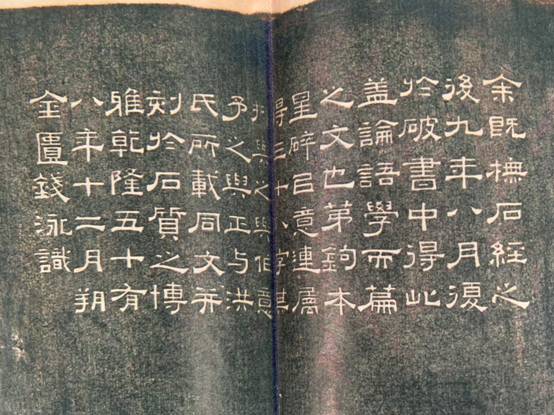 余既撫石經之
後九年八月復
於破書中得此
蓋論語學而篇
之文也第鉤本
星碎㠯意連屬
得三十八字其
抑與之與作意
予之與正与洪
氏所載同文并
刻於石質之博
雅乾隆五十有
八年十二月朔
金匱錢泳識